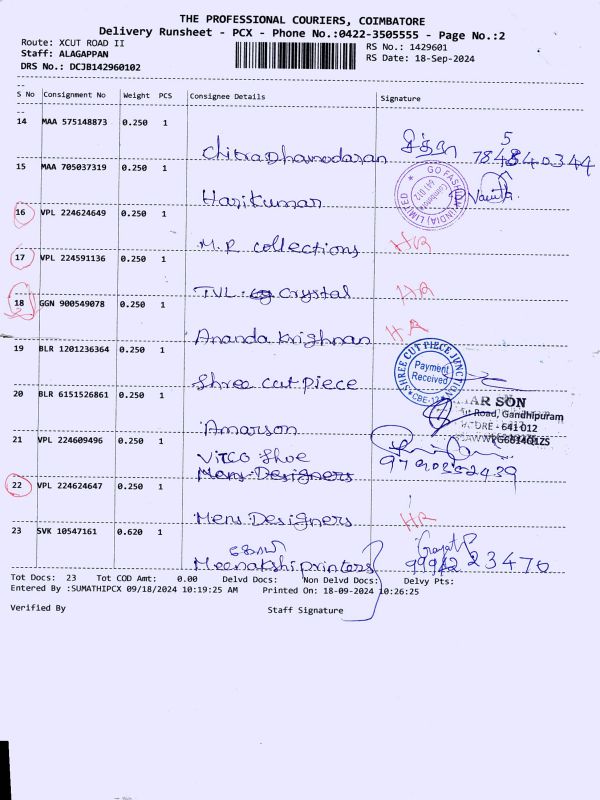 THE PROFESSIONAL COURIERS, COIMBATORE
Delivery Runsheet - PCX - Phone No.:0422-3505555 - Page No.:2
Route: XCUT ROAD II
Staff: ALAGAPPAN
DRS No.: DCJB142960102
RS No.: 1429601
RS Date: 18-Sep-2024
S No Consignment No Weight PCS Consignee Details Signature
14 MAA 575148873 0.250 1
Chitra Dhamodasan
15 MAA 705037319 0.250 1
Harikumar
GO FASHION (INDIA) LIMITED
16 VPL 224624649 0.250 1
M.R collections HR
17 VPL 224591136 0.250 1
TVL. Crystal HR
18 GGN 900549078 0.250 1
Ananda Krighnan HR
19 BLR 1201236364 0.250 1
Shree cut piece
SHREE CUT PIECE JUNCTION
Payment
Received
CBE-12
20 BLR 6151526861 0.250 1
Amarson
Road, Gandhipuram
641 012
21 VPL 224609496 0.250 1
Vitco Shoe
Mens Designers
22 VPL 224624647 0.250 1
Mens Designers HR
23 SVK 10547161 0.620 1
Meenakshi printers
Tot Docs: 23 Tot COD Amt: 0.00 Delvd Docs: Non Delvd Docs: Delvy Pts:
Entered By :SUMATHIPCX 09/18/2024 10:19:25 AM Printed On: 18-09-2024 10:26:25
Verified By Staff Signature